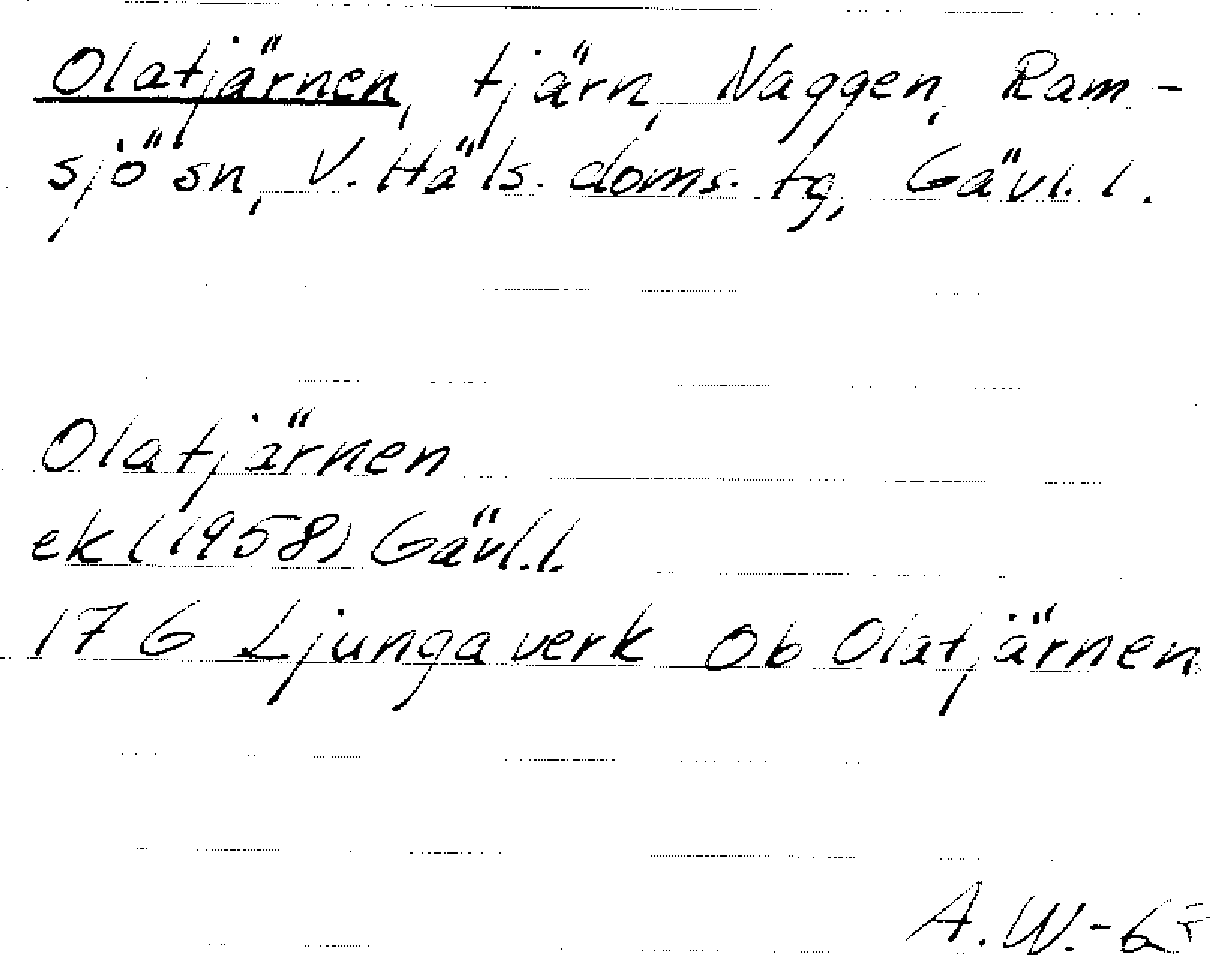 Olatjärnen, tjärn, Naggen, Ram-
sjö sn, V. Häls. doms. tg, Gävl. l.
Olatjärnen
ek (1958) Gävl. l.
17 G Ljungaverk Ob Olatjärnen
A. W.